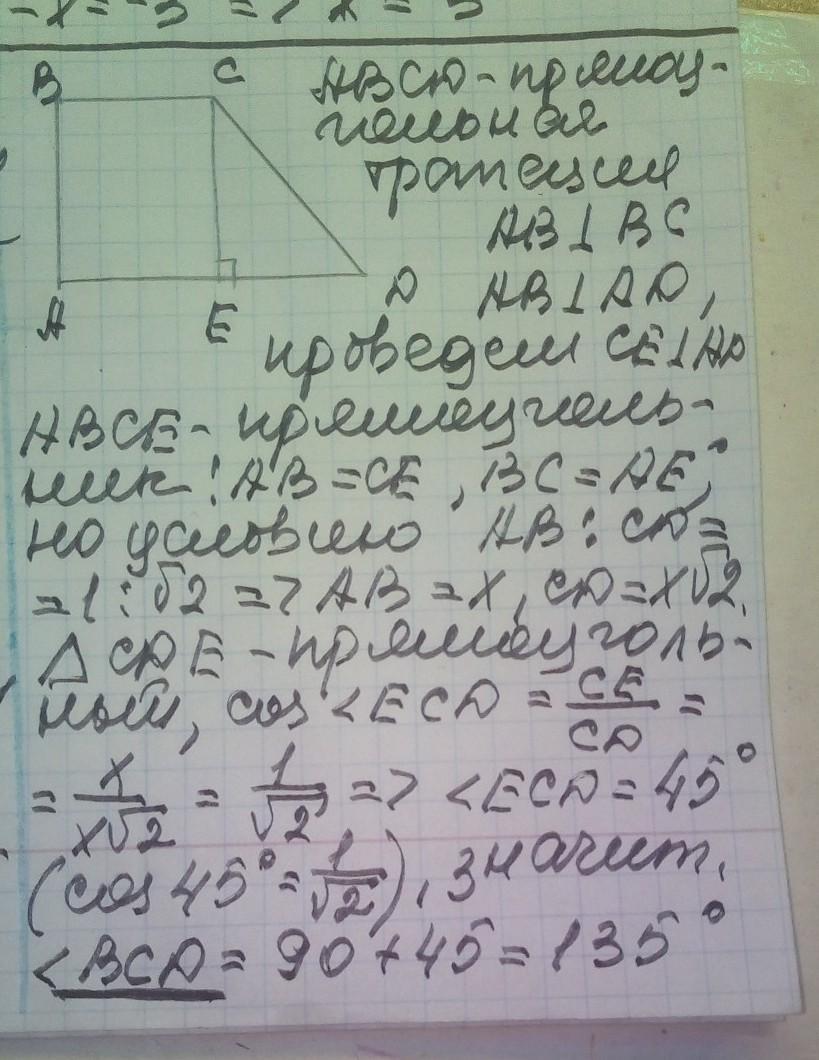 -x = -3 => x = 3
B C
ABCD - прямоу-
гольная
трапеция
AB ⊥ BC
A E D
AB ⊥ AD,
проведем CE ⊥ AD
ABCE - прямоуголь-
ник: AB = CE, BC = AE;
по условию AB : CD =
= 1 : √2 => AB = x, CD = x√2.
△ CDE - прямоуголь-
ный, cos <ECD = CE/CD =
= x/x√2 = 1/√2 => <ECD = 45°
(cos 45° = 1/√2), значит,
<BCD = 90 + 45 = 135°